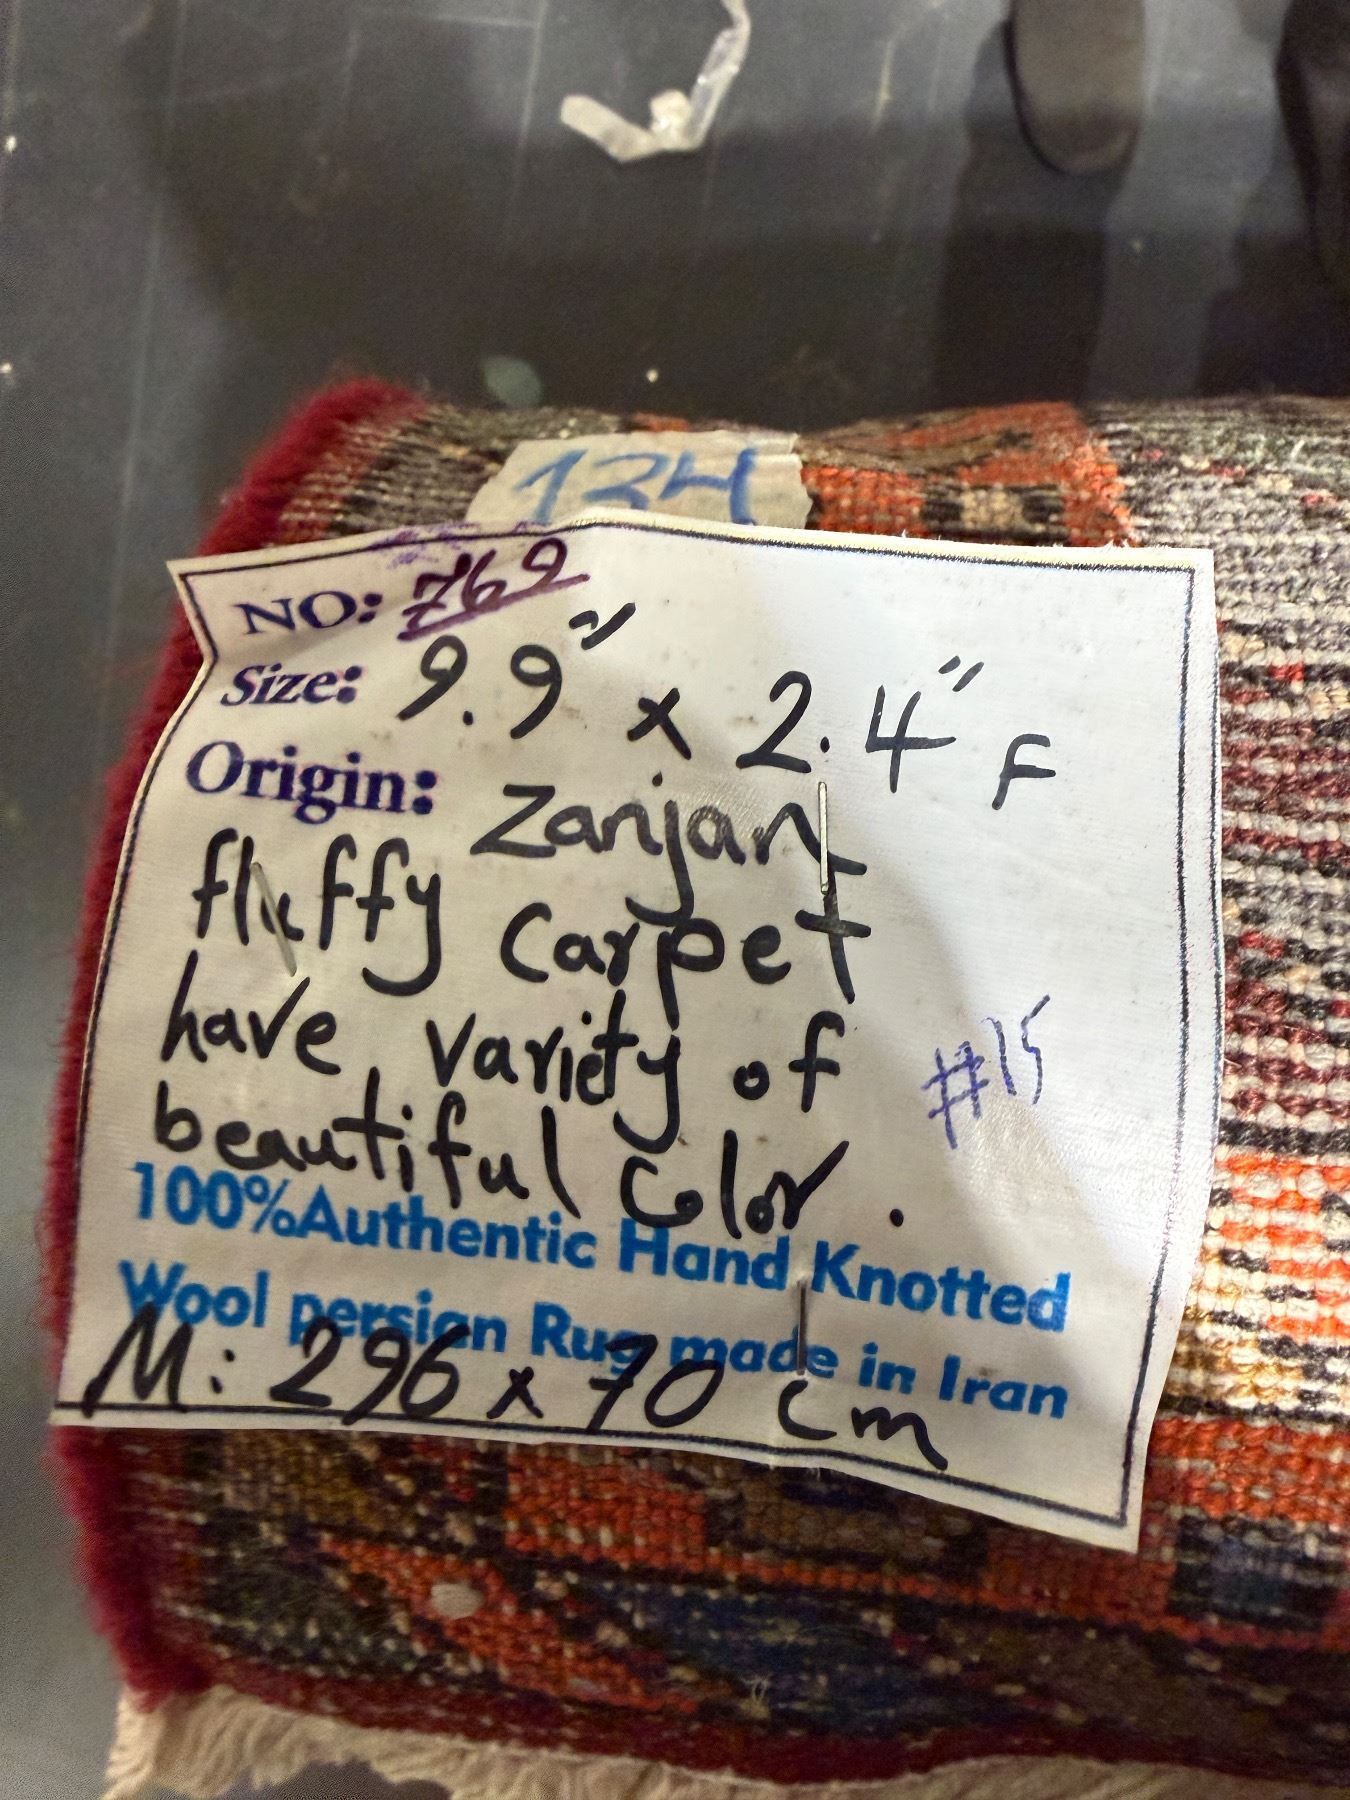 134
NO: 769
Size: 9.9" x 2.4" F
Origin: Zanjan
fluffy carpet
have variety of
#15
beautiful color.
100%Authentic Hand Knotted
Wool persian Rug made in Iran
M: 296 x 70 cm